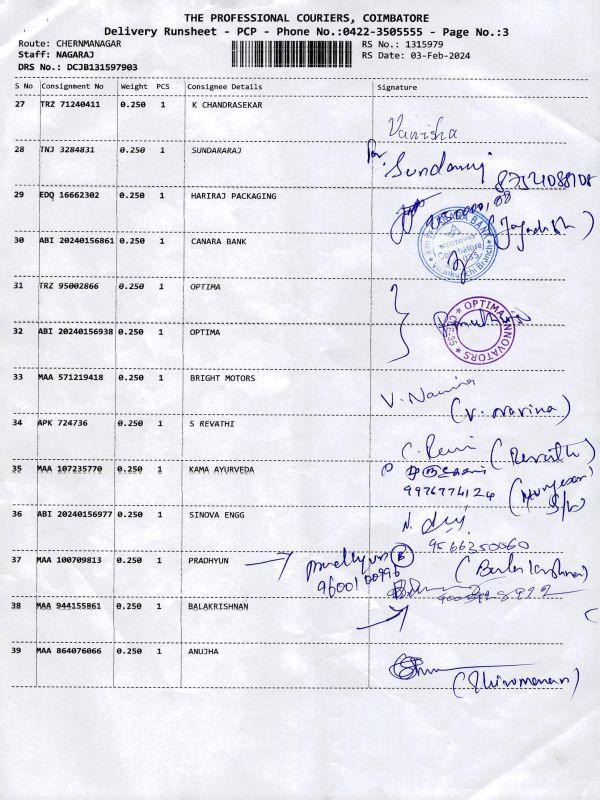 THE PROFESSIONAL COURIERS, COIMBATORE
Delivery Runsheet - PCP - Phone No.:0422-3505555 - Page No.:3
Route: CHERNMANAGAR RS No.: 1315979
Staff: NAGARAJ RS Date: 03-Feb-2024
DRS No.: DCJB131597903
S No Consignment No Weight PCS Consignee Details Signature
27 TRZ 71240411 0.250 1 K CHANDRASEKAR
Vanisha
28 TNJ 3284831 0.250 1 SUNDARARAJ
for Sundaraj
29 EDQ 16662302 0.250 1 HARIRAJ PACKAGING
(Jagadish)
30 ABI 20240156861 0.250 1 CANARA BANK
CANARA BANK
Coimbatore
31 TRZ 95002866 0.250 1 OPTIMA
32 ABI 20240156938 0.250 1 OPTIMA
OPTIMA INNOVATORS
33 MAA 571219418 0.250 1 BRIGHT MOTORS
V. Navina
(V. Navina)
34 APK 724736 0.250 1 S REVATHI
(Revathi)
35 MAA 107235770 0.250 1 KAMA AYURVEDA
9976774124
36 ABI 20240156977 0.250 1 SINOVA ENGG
9566350060
37 MAA 100709813 0.250 1 PRADHYUN
pradhyun
9600100996
(Balakrishnan)
38 MAA 944155861 0.250 1 BALAKRISHNAN
39 MAA 864076066 0.250 1 ANUJHA
(Thiromanan)